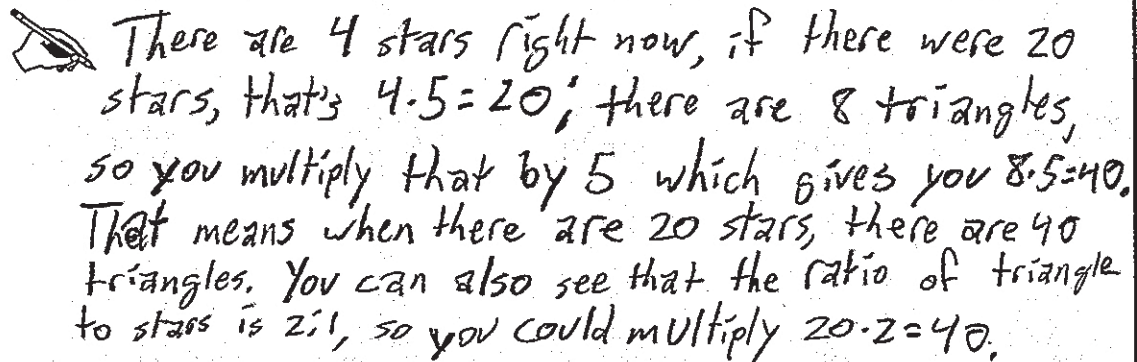 There are 4 stars right now, if there were 20
stars, that's 4·5=20; there are 8 triangles,
so you multiply that by 5 which gives you 8·5=40.
That means when there are 20 stars, there are 40
triangles. You can also see that the ratio of triangle
to stars is 2:1, so you could multiply 20·2=40.